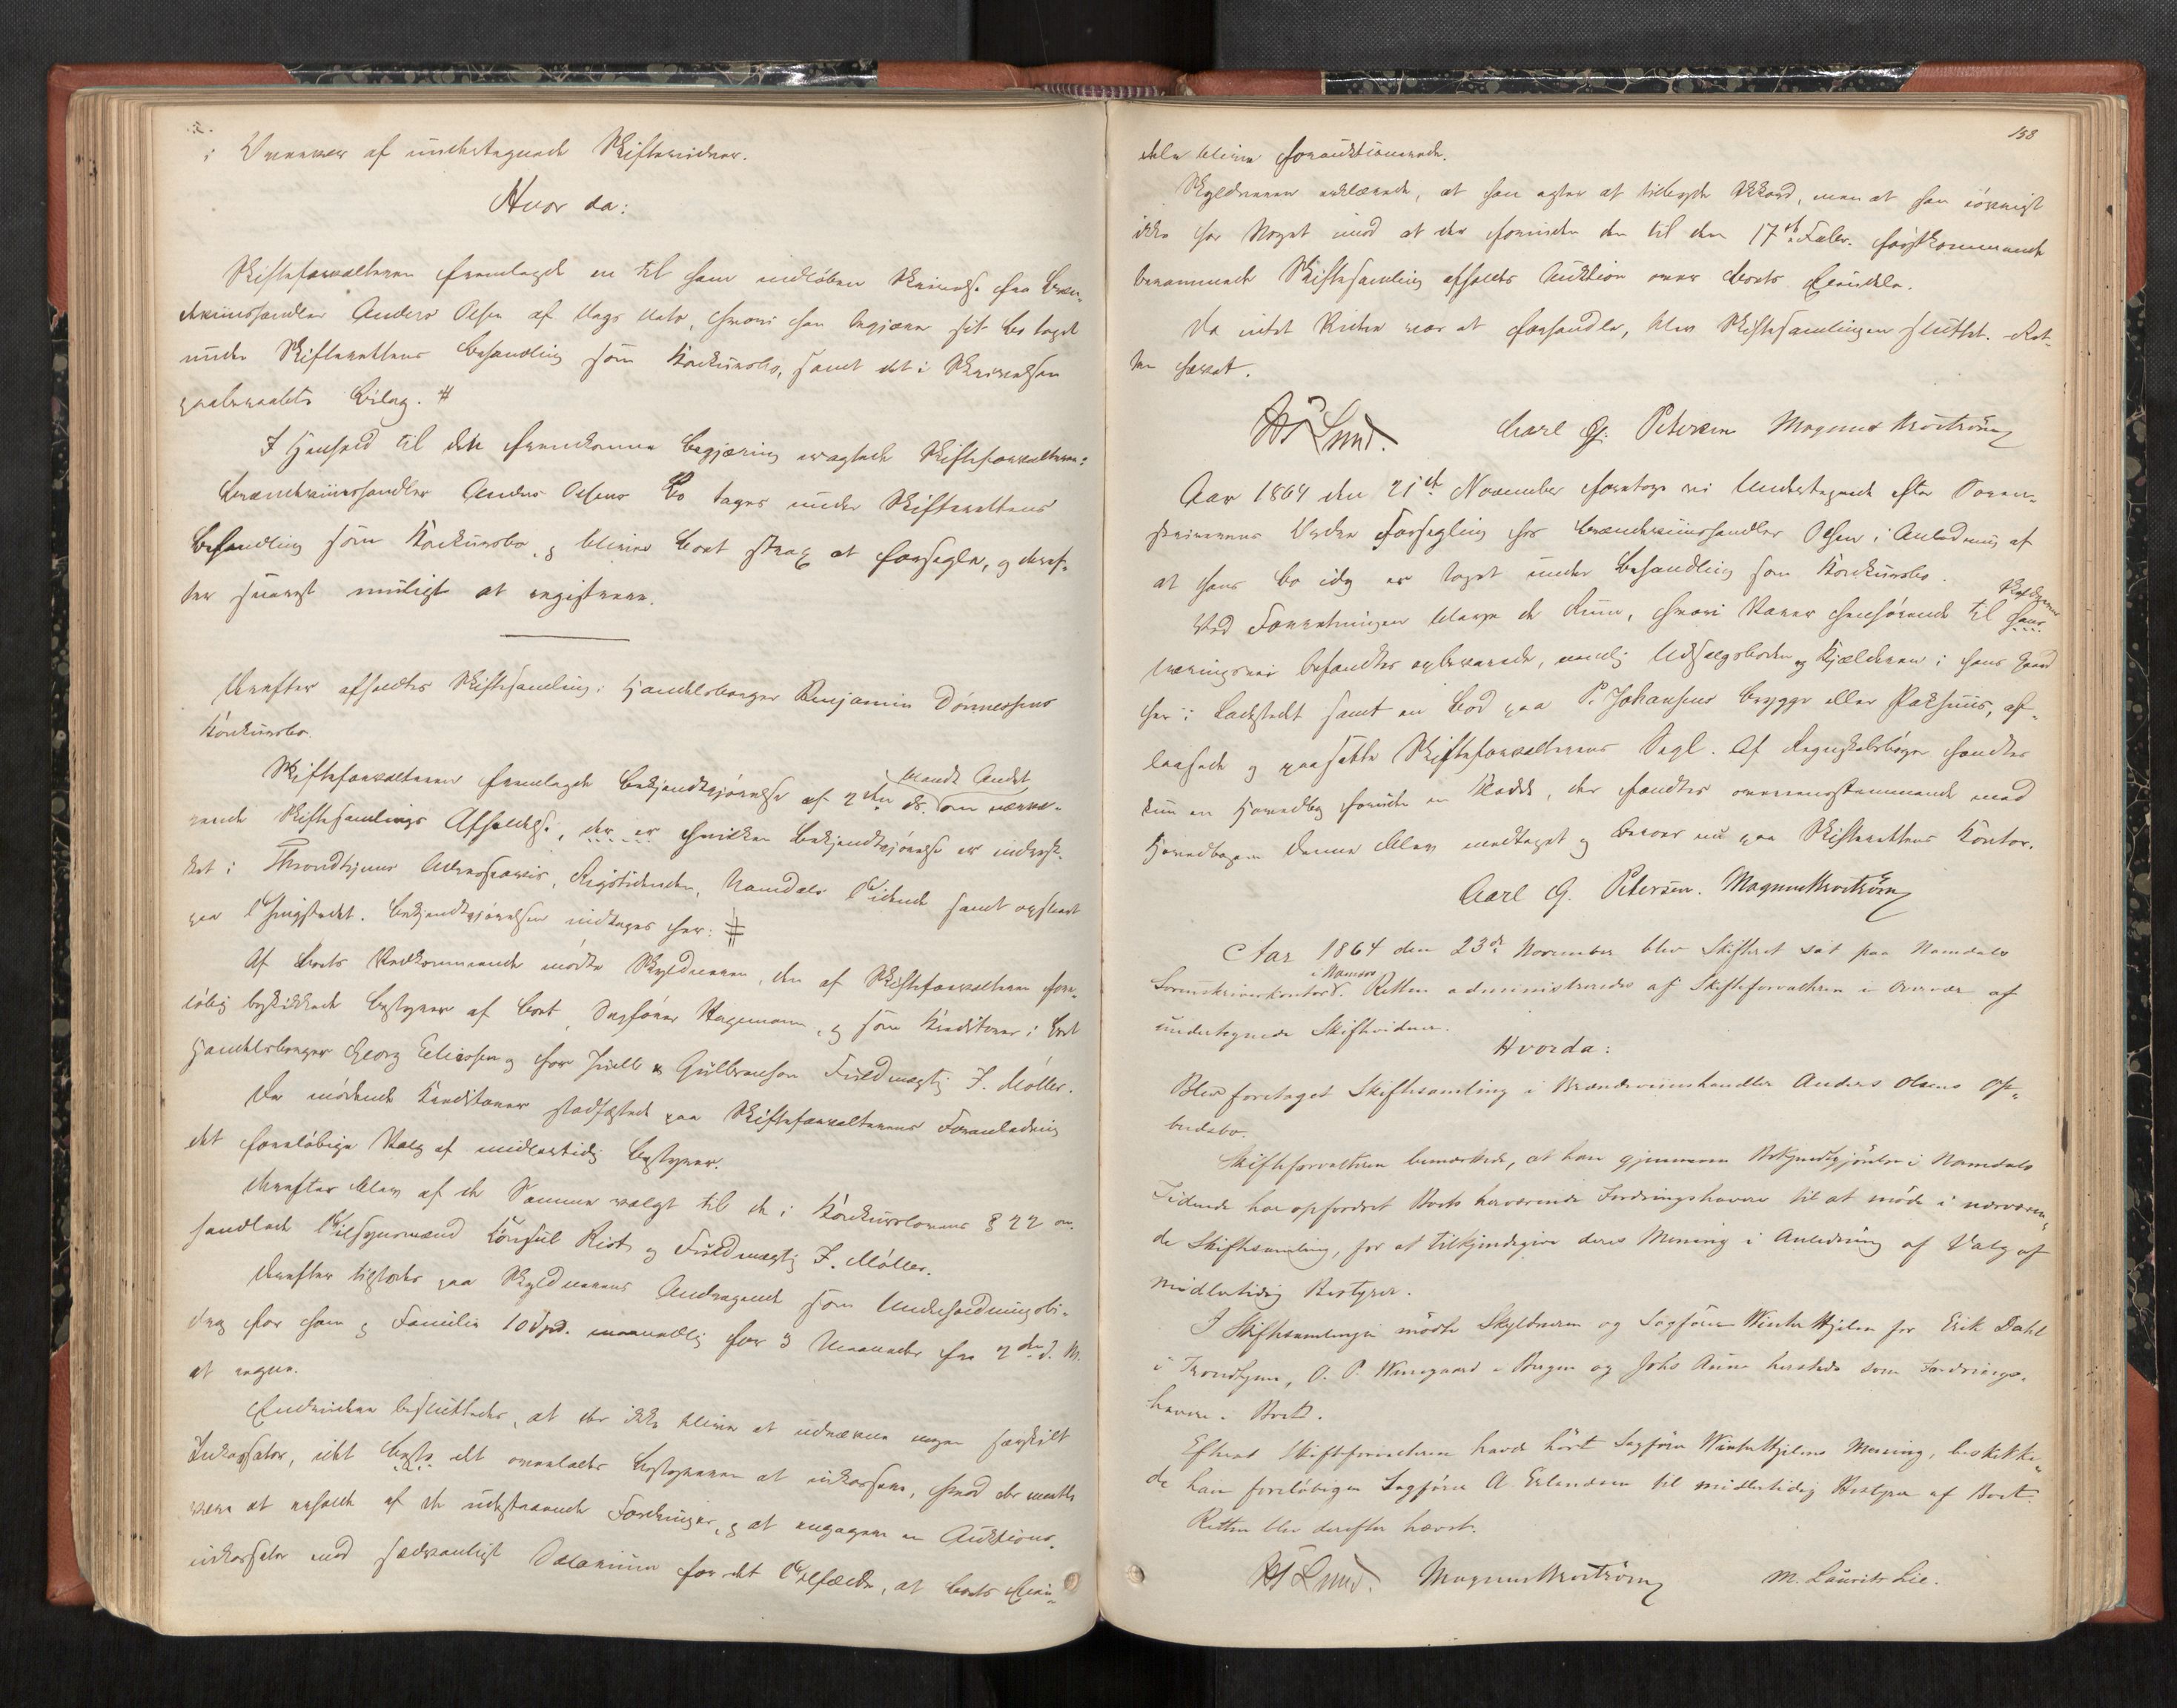 i Overvær af undertegnede Skiftevidner.
Hvor da:
Skifteforvalteren fremlagde en til ham indløben Skrivelse fra Bræn-
deviinshandler Anders Olsen af Dags Dato, hvori han begjærer sit Bo taget
under Skifterettens Behandling som Konkursbo, samt det i Skrivelsen
paaberaabte Bilag. #
I Henhold til den fremkomne Begjæring eragtede Skifteforvalteren:
Brændeviinshandler Anders Olsens Bo tages under Skifterettens
Behandling som Konkursbo, og bliver Boet strax at forsegle, og deref-
ter snarest muligt at registrere.
Derefter afholdtes Skiftesamling i Handelsborger Benjamin Dønnessens
Konkursbo.
Skifteforvalteren fremlagde Bekjendtgjørelse af 2den ds. blandt Andet om nærvæ-
rende Skiftesamlings Afholdelse, der er hvilken Bekjendtgjørelse er indryk-
ket i Throndhjems Adresseavis, Rigstidenden, Namdals Tidende samt opslaaet
paa Thingstedet. Bekjendtgjørelsen indtages her: #
Af Boets Vedkommende mødte Skyldneren, den af Skifteforvalteren fore-
løbig beskikkede Bestyrer af Boet, Sagfører Hagemann, og som Kreditorer i Boet
Handelsborger Georg Eliassen og for Huitt & Gulbranson Fuldmægtig J. Møller.
De mødende Kreditorer stadfæstede paa Skifteforvalterens Foranledning
det foreløbige Valg af midlertidig Bestyrer.
Derefter blev af de Samme valgt til de i Konkurslovens § 22 om-
handlede Tilsynsmænd Konsul Rist og Fuldmægtig J. Møller.
Derefter tilstodes paa Skyldnerens Andragende som Underholdningsbi-
drag for ham og Familie 10 Spd. maanedlig for 3 Maaneder fra 2den d. M.
at regne.
Endvidere besluttedes, at der ikke bliver at udnævne nogen særskilt
Inkassator, idet Besty det overlades Bestyreren at inkassere, hvad der maatte
være at erholde af de udestaaende Fordringer, og at engagere en Auktions-
inkassator mod sædvanligt Salarium for det Tilfælde, at Boets Eien-
158
dele blive forauktionerede.
Skyldneren erklærede, at han agter at tilbyde Akkord, men at han iøvrigt
ikke har Noget imod at der forinden den til den 17de Febr. førstkommende
berammede Skiftesamling afholdes Auktion over Boets Eiendele.
Da intet Videre var at forhandle, blev Skiftesamlingen sluttet. Ret-
ten hævet.
Lund. Carl G. Petersen Magnus Kroström
Aar 1864 den 21de November foretoge vi Undertegnede efter Soren-
skriverens Ordre Forsegling hos Brændeviinshandler Olsen i Anledning af
at hans Bo idag er taget under Behandling som Konkursbo.
Ved Forretningen bleve de Rum, hvori Varer henhørende til hans Skyldnerens
Næringsvei befandtes opbevarede, nemlig Udsalgsboden og Kjælderen i hans Gaard
her i Ladestedet samt en Bod paa P. Johansens Brygge eller Pakhuus, af-
laasede og paasatte Skifteforvalterens Segl. Af Regnskabsbøger fandtes
kun en Hovedbog foruden en Kladde, der fandtes overensstemmende med
Hovedbogen. Denne blev medtaget og beroer nu paa Skifterettens Kontor.
Carl G. Petersen. Magnus Kroström
Aar 1864 den 23de November blev Skifteret sat paa Namdals
Sorenskriverkontor i Namsos. Retten administreredes af Skifteforvalteren i Overvær af
undertegnede Skiftevidner.
Hvorda:
Blev foretaget Skiftesamling i Brændeviinshandler Anders Olsens Op-
budsbo.
Skifteforvalteren bemærkede, at han gjennem Bekjendtgjørelse i Namdals
Tidende har opfordret Boets herværende Fordringshavere til at møde i nærværen-
de Skiftesamling, for at tilkjendegive deres Mening i Anledning af Valg af
midlertidig Bestyrer.
I Skiftesamlingen mødte Skyldneren og Sagfører Winter Hjelm for Erik Dahl
i Trondhjem, O. P. Wingaard i Bergen og Johs Aune hersteds som Fordrings-
havere i Boet.
Efterat Skifteforvalteren havde hört Sagförer Winter Hjelms Mening, beskikke-
de han foreløbigen Sagförer A. Erlandsen til midlertidig Bestyrer af Boet.
Retten blev derefter hævet.
Lund. Magnus Kroström M. Laurits Lie.